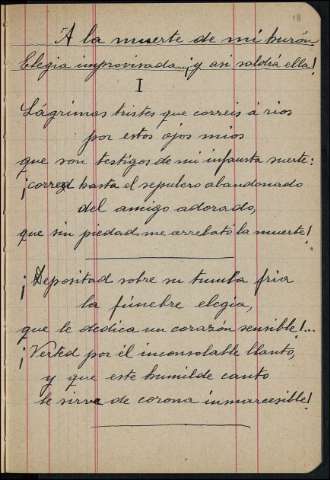 18
A la muerte de mi hurón
Elegia improvisada... ¡y asi saldrá ella!
I
Lágrimas tristes que correis á rios
por estos ojos mios
que son testigos de mi infausta suerte:
¡corred hasta el sepulcro abandonado
del amigo adorado,
que sin piedad me arrebató la muerte!
¡Depositad sobre su tumba fria
la fúnebre elegia,
que le dedica un corazón sensible!...
¡Verted por él inconsolable llanto,
y que este humilde canto
le sirva de corona inmarcesible!